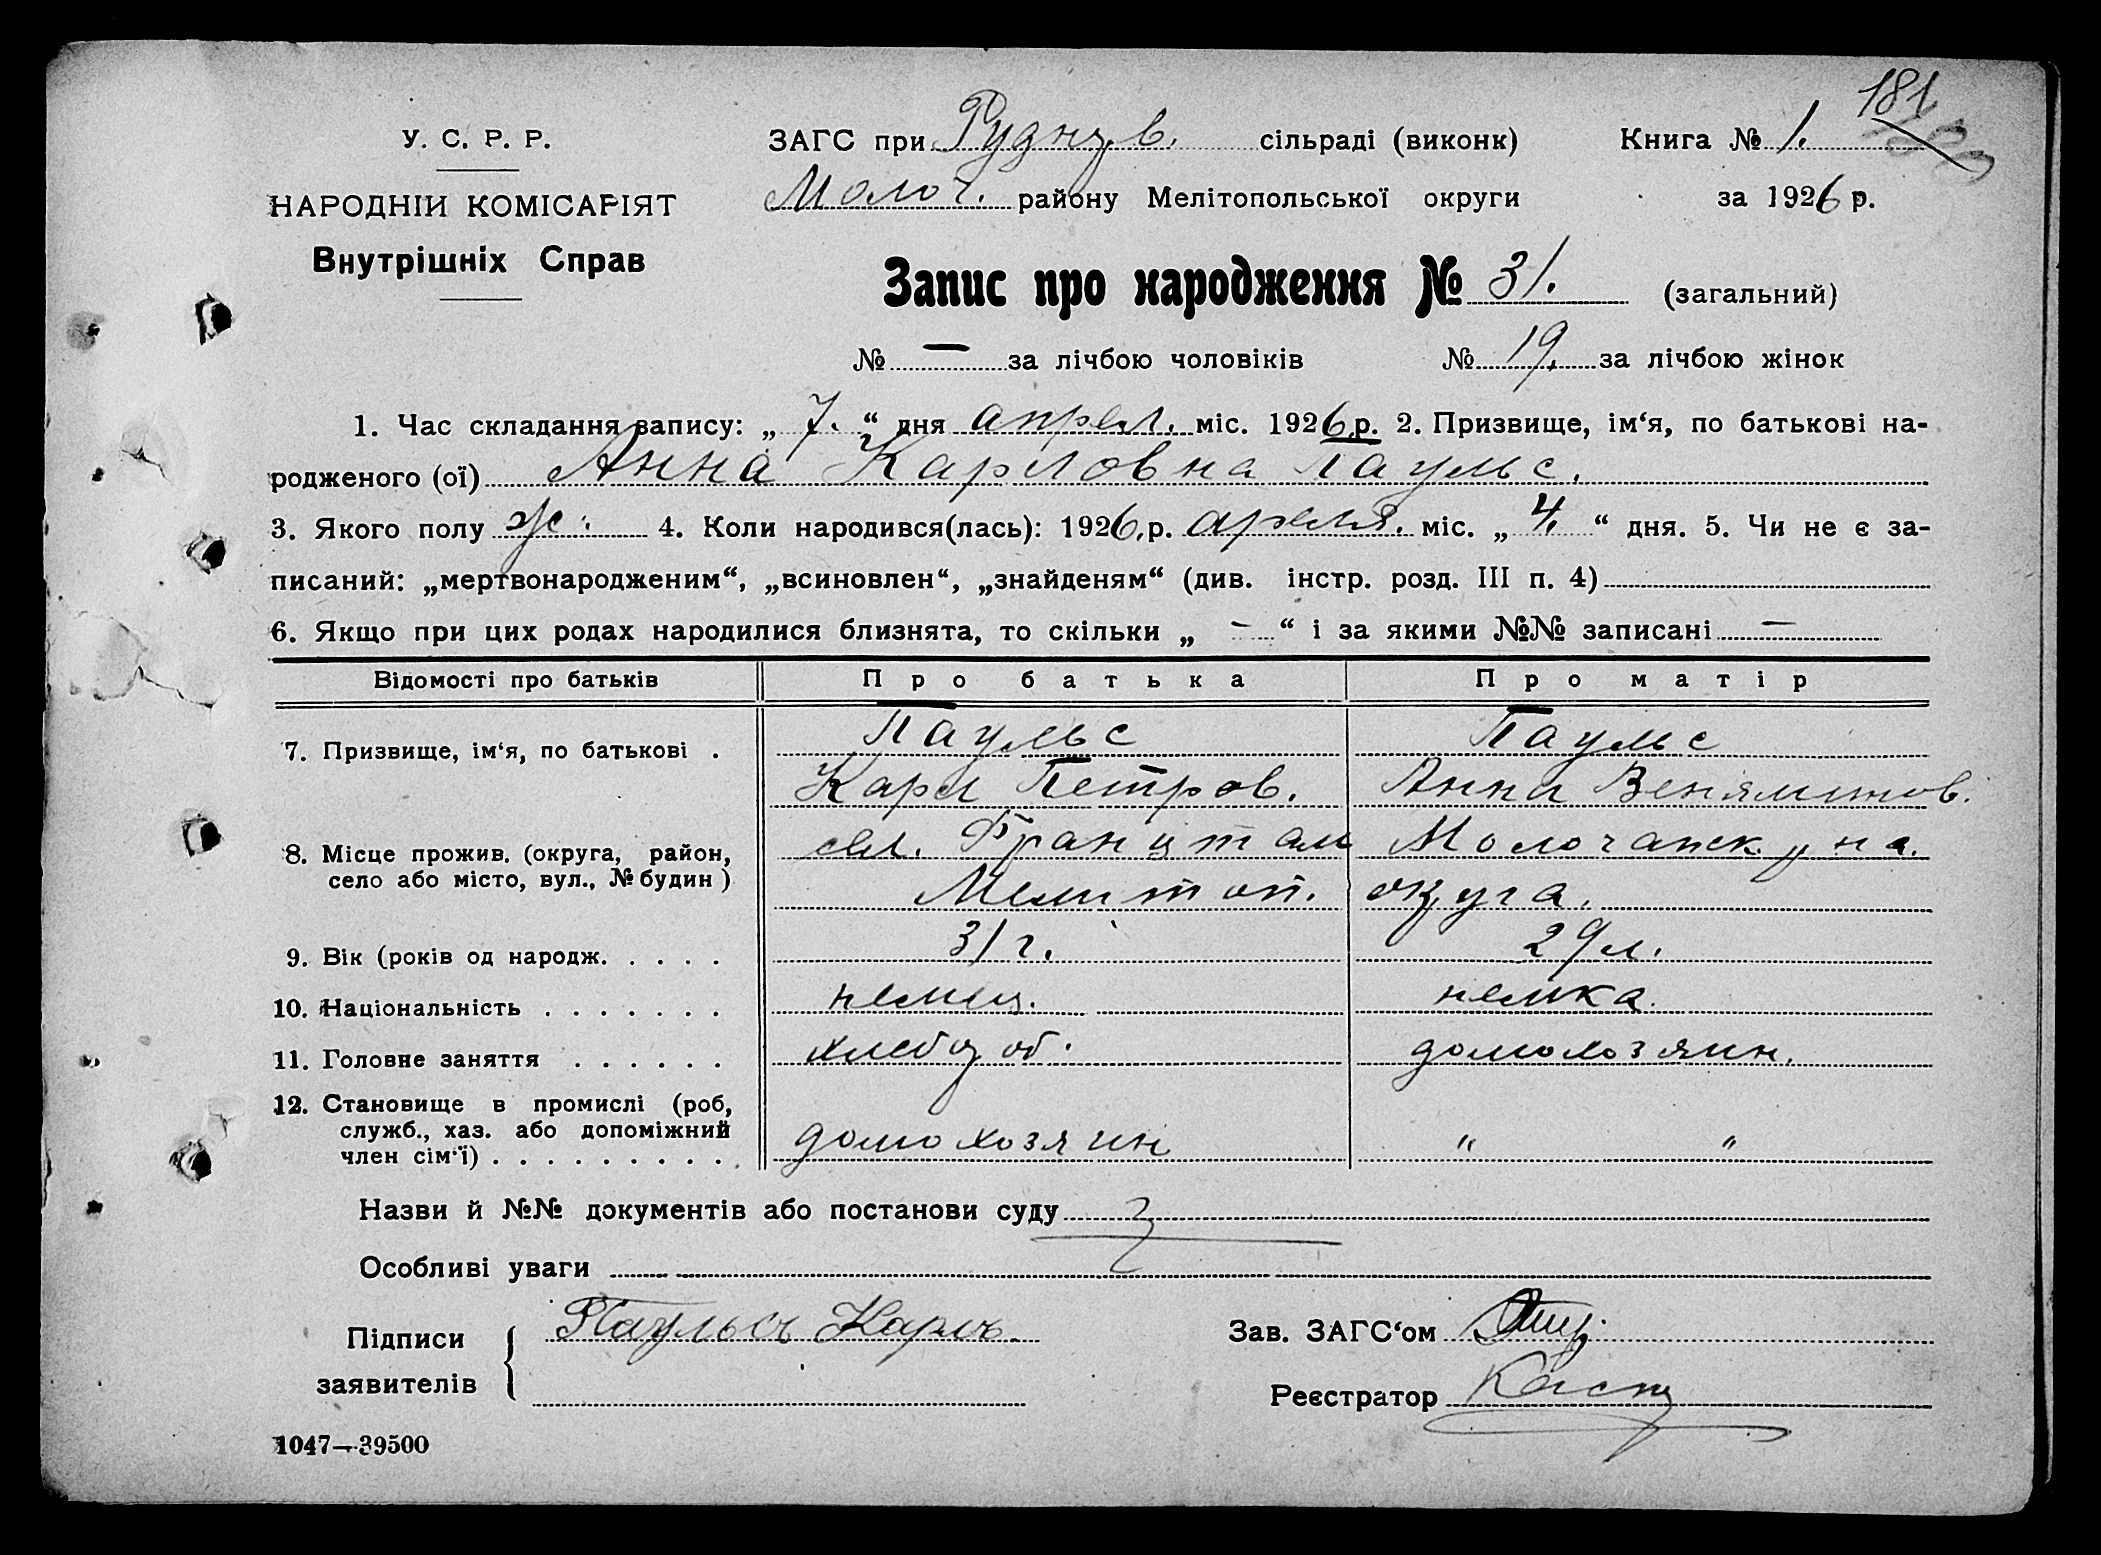 181
У. С. Р. Р.
ЗАГС при Руднув. сільраді (виконк)
Книга № 1.
НАРОДНІЙ КОМІСАРІЯТ
Молоч. району Мелітопольської округи
за 1926 р.
Внутрішніх Справ
Запис про народження № 31. (загальний)
№ — за лічбою чоловіків № 19. за лічбою жінок
1. Час складання запису: „ 7. “ дня апрел. міс. 1926 р. 2. Призвище, ім‘я, по батькові на-
родженого (ої) Анна Карловна Паульс.
3. Якого полу ж. 4. Коли народився(лась): 1926, р. апреля. міс. „ 4. “ дня. 5. Чи не є за-
писаний: „мертвонародженим“, „всиновлен“, „знайденям“ (див. інстр. розд. III п. 4)
6. Якщо при цих родах народилися близнята, то скільки „ - “ і за якими №№ записані —
Відомості про батьків Про батька Про матір
7. Призвище, ім‘я, по батькові . Паульс Паульс
Карл Петров. Анна Веняминов.
8. Місце прожив. (округа, район, сел. Францталь Молочанск. уна.
село або місто, вул., № будин ) Мелитоп. округа.
9. Вік (років од народж. . . . . 31 г. 29 л.
10. Національність . . . . . . . немец. немка.
11. Головне заняття . . . . . . хлебороб. домохозяин.
12. Становище в промислі (роб,
служб., хаз. або допоміжний
член сім‘ї) . . . . . . . . . . домохозяин " "
Назви й №№ документів або постанови суду
Особливі уваги
Підписи заявителів { Паульсъ Карлъ.
Зав. ЗАГС‘ом
Реєстратор
1047—39500